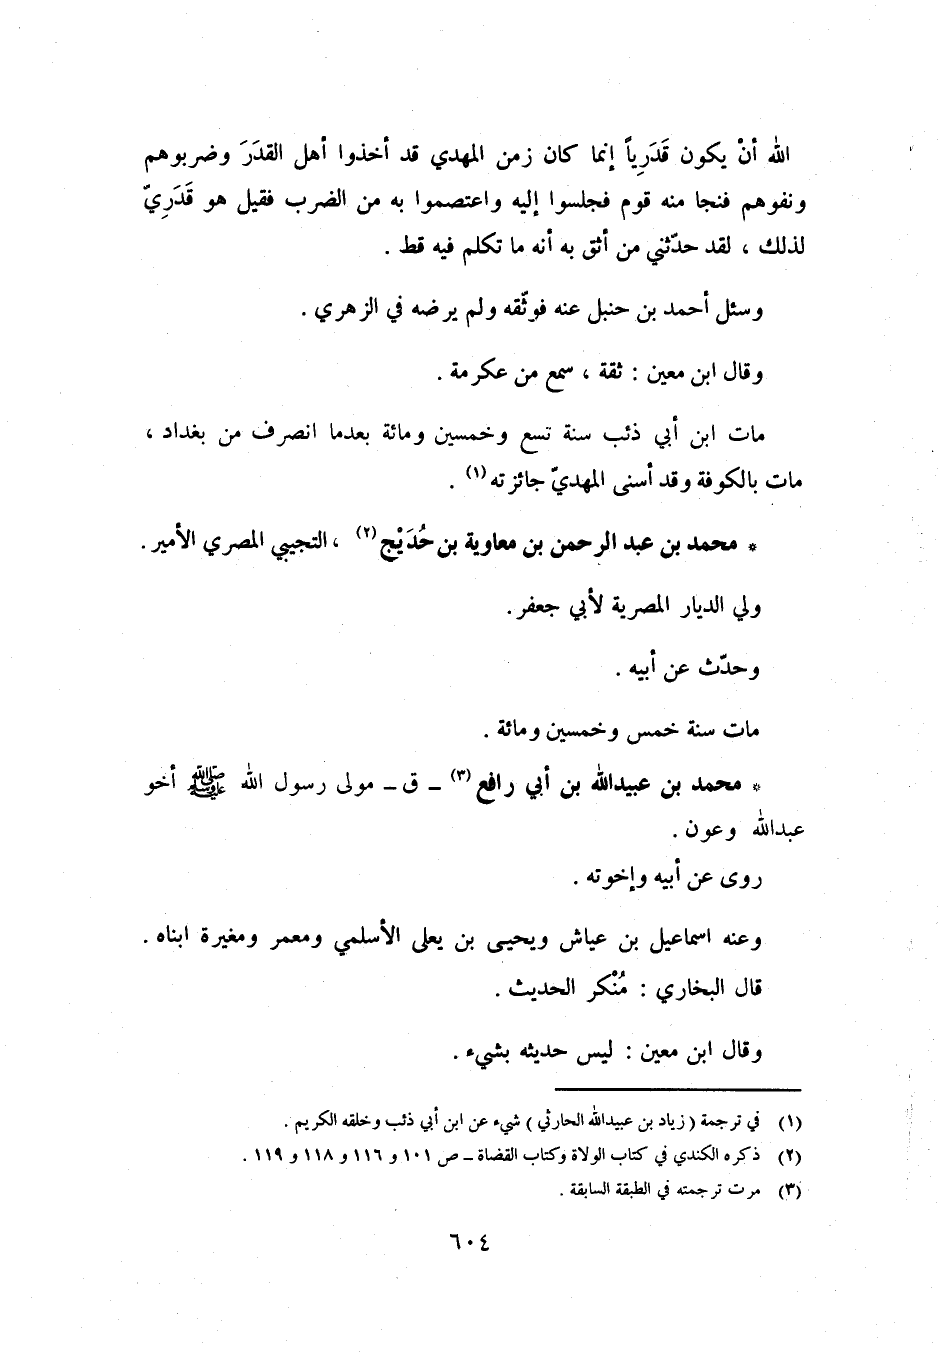 الله أنْ يكون قَدَرِياً إنما كان زمن المهدي قد أخذوا أهل القدَرَ وضربوهم
ونفوهم فنجا منه قوم فجلسوا إليه واعتصموا به من الضرب فقيل هو قَدَرِيّ
لذلك ، لقد حدّثني من أثق به أنه ما تكلم فيه قط .
وسئل أحمد بن حنبل عنه فوثّقه ولم يرضه في الزهري .
وقال ابن معين : ثقة ، سمع من عكرمة .
مات ابن أبي ذئب سنة تسع وخمسين ومائة بعدما انصرف من بغداد ،
مات بالكوفة وقد أسنى المهديّ جائزته (١) .
* محمد بن عبد الرحمن بن معاوية بن حُدَيْج (٢) ، التجيبي المصري الأمير .
ولي الديار المصرية لأبي جعفر .
وحدّث عن أبيه .
مات سنة خمس وخمسين ومائة .
* محمد بن عبيدالله بن أبي رافع (٣) ـ ق ـ مولى رسول الله ﷺ أخو
عبدالله وعون .
روى عن أبيه وإخوته .
وعنه اسماعيل بن عياش ويحيى بن يعلى الأسلمي ومعمر ومغيرة ابناه .
قال البخاري : مُنْكر الحديث .
وقال ابن معين : ليس حديثه بشيء .
(١) في ترجمة ( زياد بن عبيدالله الحارثي ) شيء عن ابن أبي ذئب وخلقه الكريم .
(٢) ذكره الكندي في كتاب الولاة وكتاب القضاة ـ ص ١٠١ و ١١٦ و ١١٨ و ١١٩ .
(٣) مرت ترجمته في الطبقة السابقة .
٦٠٤